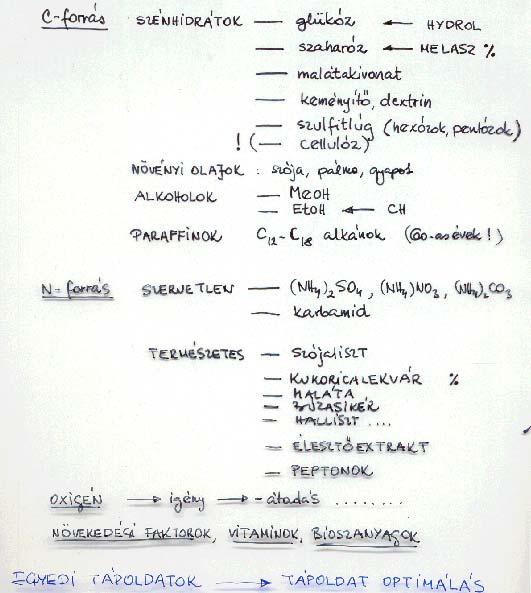 C-forrás SZÉNHIDRÁTOK — glükóz ← HYDROL
— szaharóz ← MELASZ %
— malátakivonat
— keményítő, dextrin
— szulfitlúg (hexózok, pentózok)
! (— cellulóz)
NÖVÉNYI OLAJOK : szója, pálma, gyapot
ALKOHOLOK — MeOH
— EtOH ← CH
PARAFFINOK C12-C18 alkánok (60-as évek!)
N-forrás SZERVETLEN — (NH4)2SO4, (NH4)NO3, (NH4)2CO3
— karbamid
TERMÉSZETES — szójaliszt
— KUKORICALEKVÁR %
— MALÁTA
— BÚZASIKÉR
— HALLISZT ....
— ÉLESZTŐEXTRAKT
— PEPTONOK
OXIGÉN → igény → -átadás ........
NÖVEKEDÉSI FAKTOROK, VITAMINOK, BIOSZANYAGOK
EGYEDI TÁPOLDATOK → TÁPOLDAT OPTIMÁLÁS